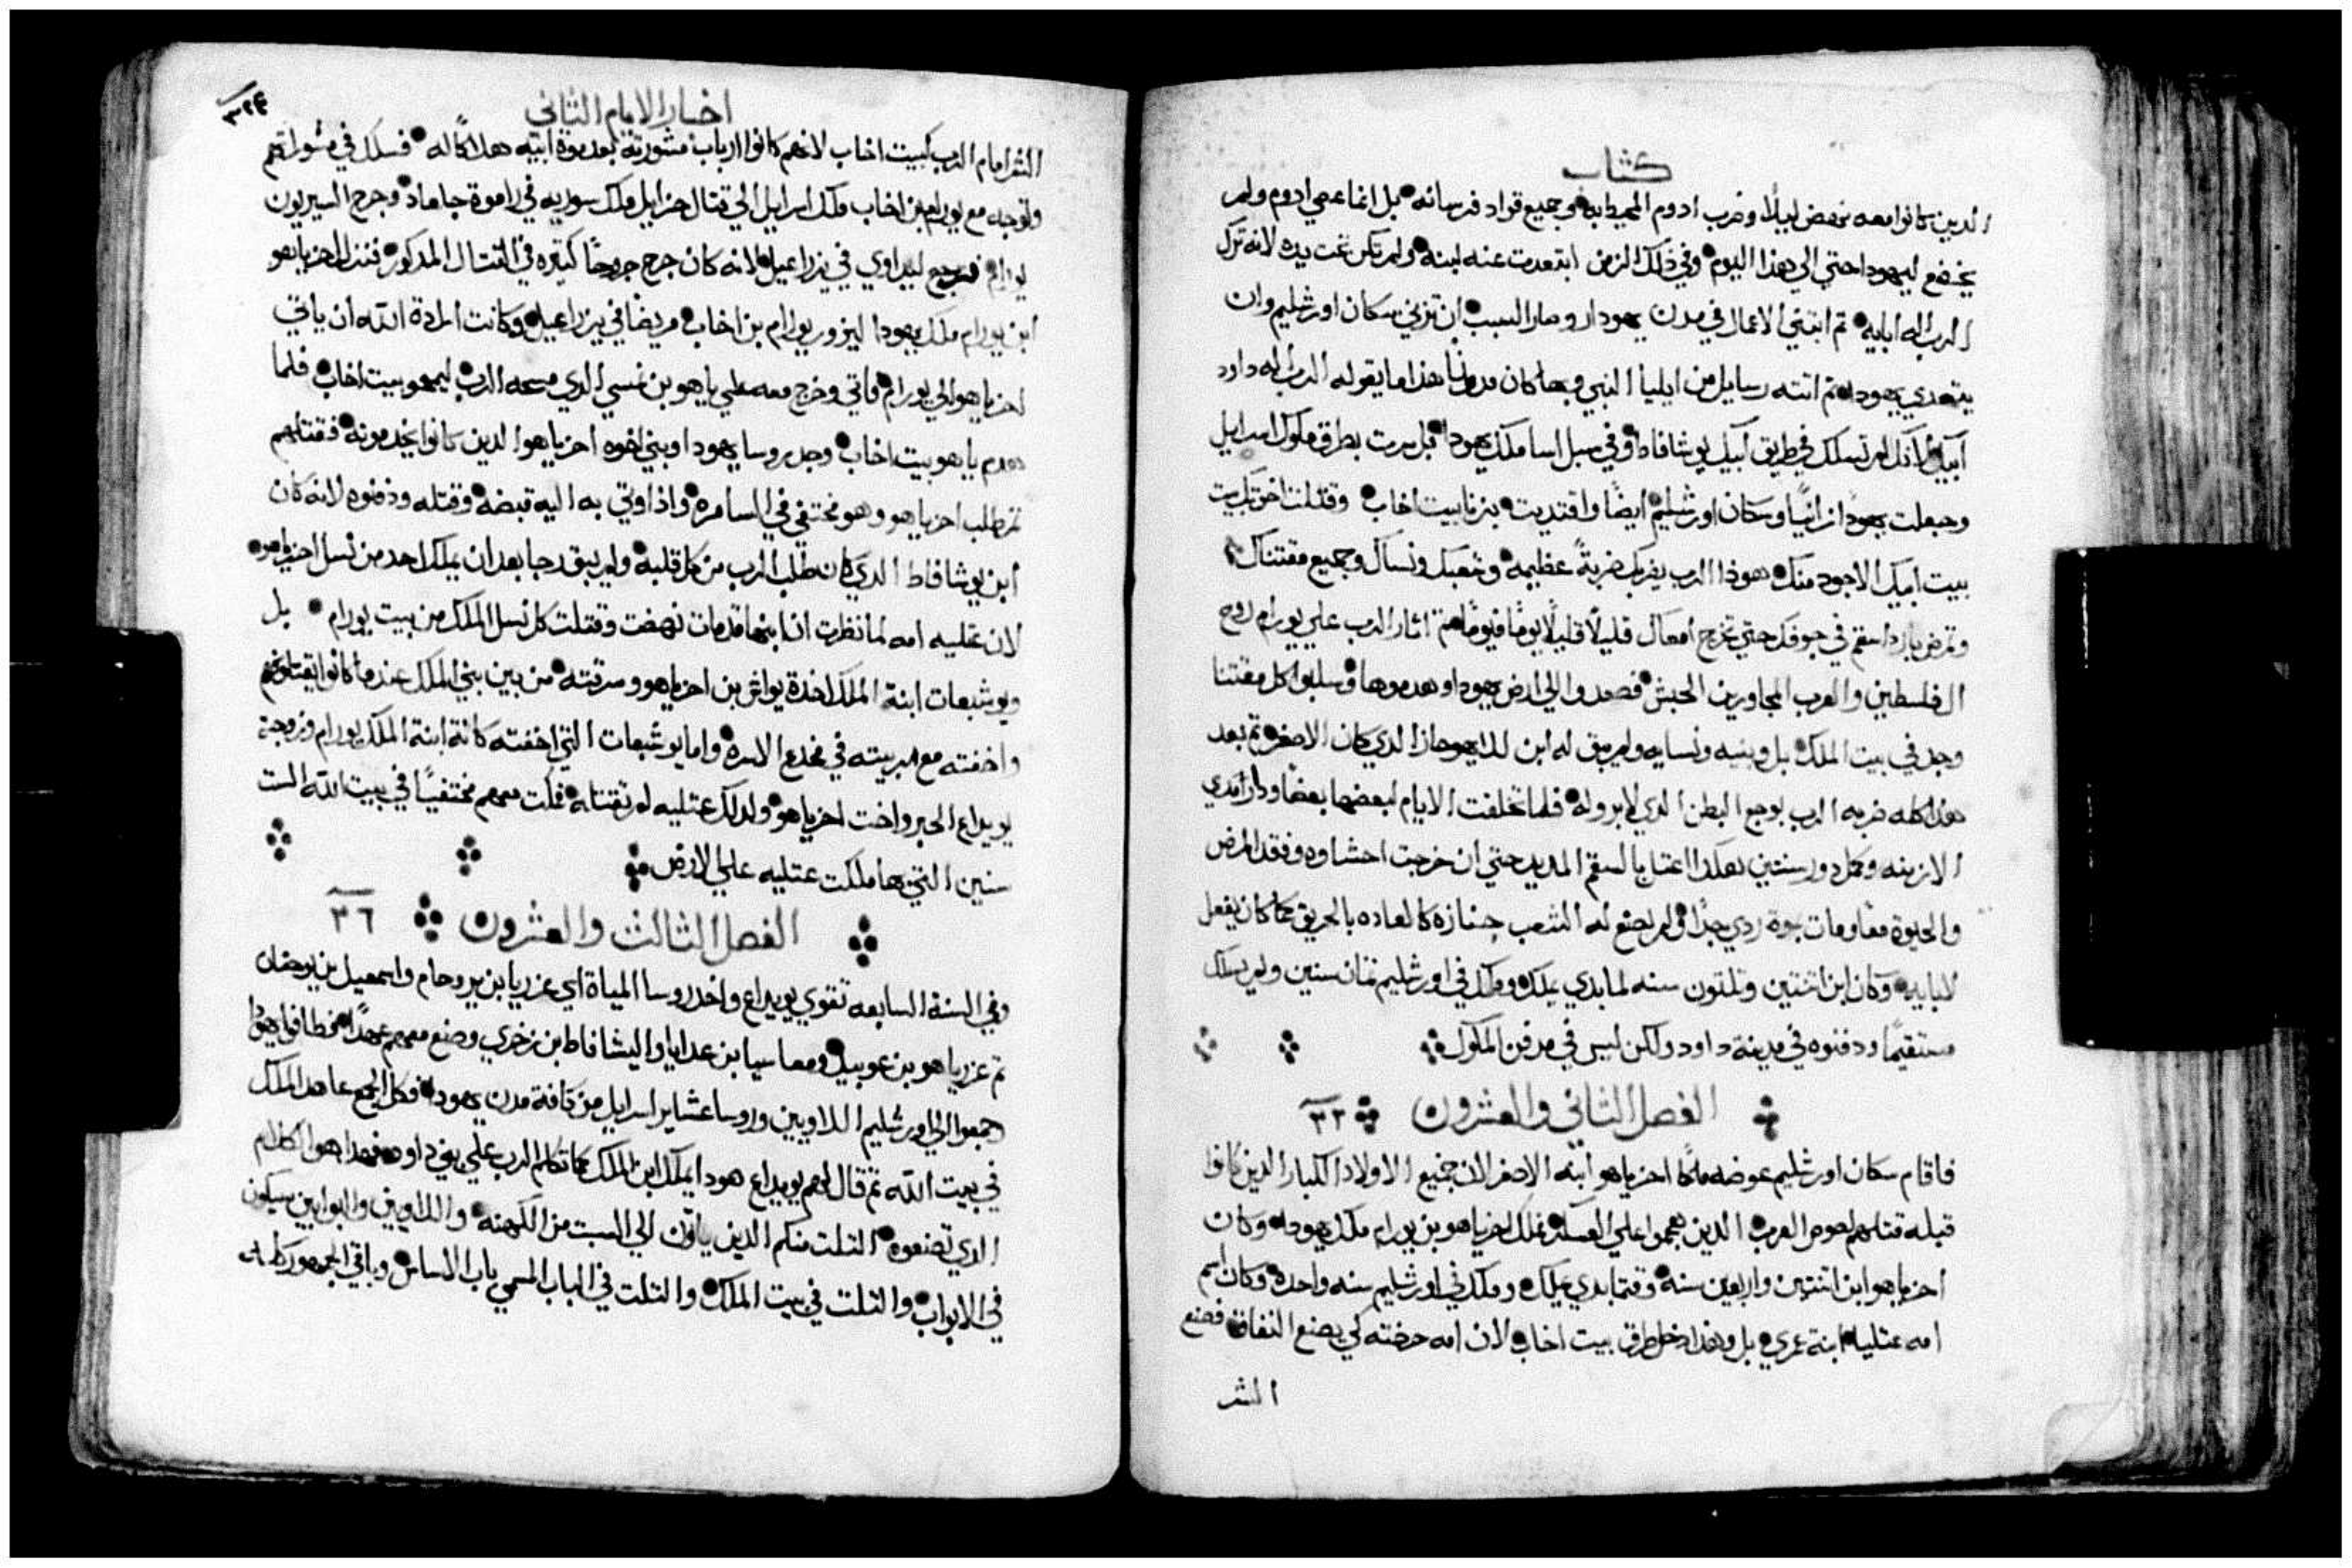 كتاب
الدين كانوا معه نهض ليلاً وضرب ادوم المحيطابه وجميع قواد فرسانه بل انما عصي ادوم ولم
يخضع ليهودا حتي الي هذا اليوم وفي ذلك الزمن ابتعدت عنه لبنه ولم تكن تحت يده لانه ترك
الرب اله ابايه ثم ابتني الاعال في مدن يهودا وصار السبب ان تزني سكان اورشليم وان
يتعدي يهودا ثم اتته رسايل من ايليا النبي وبها كان مدونا هذا ما يقوله الرب اله داود
ابيك اذ لم تسلك في طريق ابيك يوشافاط وفي سبل اسا ملك يهودا بل سرت بطرق ملوك اسرايل
وجعلت يهودا زانيا وسكان اورشليم ايضا واقتديت بزنا بيت اخاب وقتلت اخوتك بيت
بيت ابيك الاجود منك هوذا الرب يضربك ضربةً عظيمه وشعبك ونساك وجميع مقتناك
وتمرض باردا سقم في جوفك حتي تخرج امعاك قليلاً قليلاً يوماً فيوماً ثم اثار الرب علي يورام روح
الفلسطين والعرب المجاورين الحبش فصعدوا الي ارض يهودا وهدموها وسلبوا كل مقتنا
وجد في بيت الملك بل وبنيه ونسايه ولم يبق له ابن الا يهوحاز الذي كان الاصغر ثم بعد
هذا كله ضربه الرب بوجع البطن الدي لا برو له فلما تخلفت الايام لبعضها بعضاً ودار مدي
الازمنه وكمل دور سنتين هكدا اعتل بالسقم المديد حتي ان خرجت احشاوه وفقد المرض
والحيوة معاً ومات بموة ردي جداً ولم يصنع له الشعب جنازه كالعاده بالحريق كما كان يفعل
لابايه وكان ابن اتنتين وتلتون سنه لما بدي يملك وملك في اورشليم تمان سنين ولم يسلك
مستقيمًا ودفنوه في مدينة داود ولكن ليس في مدفن الملوك
الفصل الثاني والعشرون ٣٢
فاقام سكان اورشليم عوضه ملكاً احزياهو ابنه الاصغر لان جميع الاولاد الكبار الدين كانوا
قبله قتلهم لصوص العرب الدين هجموا علي العسكر فملك احزياهو بن يورام ملك يهودا وكان
احزياهو ابن اتنتين واربعين سنه وقتما بدي يملك وملك في اورشليم سنه واحده وكان اسم
امه عتليا ابنة عمري بل وهذا دخل طرق بيت اخاب لان امه حرضته لكي يصنع النفاق فصنع
الشر
اخبار الايام الثاني
٣٢٤
الشر امام الرب كبيت اخاب لانهم كانوا ارباب مشورته بعد موة ابيه هلاكاً له فسلك في مشوراتهم
وتوجه مع يورام بن اخاب ملك اسرايل الي قتال حزايل ملك سوريه في راموة جلعاد وجرح السيريون
يورام فرجع ليداوي في يزراعيل لانه كان جرح جروحاً كتيره في القتال المذكور فنزل احزياهو
ابن يورام ملك يهودا ليزور يورام بن اخاب مريضا في يزراعيل وكانت ارادة الله ان ياتي
احزياهو الي يورام فاتي وخرج معه علي ياهو بن نمسي الدي مسحه الرب ليمحو بيت اخاب فلما
هدم ياهو بيت اخاب وجد روسا يهودا وبني اخوه احزياهو الدين كانوا يخدمونه فقتلهم
ثم طلب احزياهو وهو مختفي في السامره واذ اوتي به اليه قبضه وقتله ودفنوه لانه كان
ابن يوشافاط الدي كان طلب الرب من كل قلبه ولم يبق رجا بعد ان يملك احد من نسل احزياهو
لان عتليه امه لما نظرت ان ابنها قد مات نهضت وقتلت كل نسل الملك من بيت يورام بل
ويوشبعات ابنة الملك اخدة يواش بن احزياهو وسرقته من بين بني الملك عندما كانوا يقتلونهم
واخفته مع مربيته في مخدع الاسره واما يوشبعات التي اخفته كانة ابنة الملك يورام وزوجة
يويداع الحبر واخت احزياهو ولدلك عتليه لم تقتله فكت معهم مختفياً في بيت الله الست
سنين التي بها ملكت عتليه علي الارض
الفصل الثالث والعشرون ٣٦
وفي السنة السابعه تقوي يويداع واخد روسا المياة اي عزريا بن يروحام واسمعيل بن يوحنان
ثم عزرياهو بن عوبيد ومعاسيا بن عدايا واليشافاط بن زخري وصنع معهم عهداً فطافوا يهودا
وجمعوا الي اورشليم اللاويين وروسا عشاير اسرايل من كافة مدن يهودا فكل الجمع عاهد الملك
في بيت الله ثم قال لهم يويداع هودا يملك ابن الملك كما تكلم الرب علي بني داود فهدا هو الكلام
الدي تصنعوه التلت منكم الدين ياتون الي السبت من الكهنه واللاويين والبوابين سيكون
في الابواب والتلت في بيت الملك والتلت في الباب المسمي باب الاساس وباقي الجمهور كله